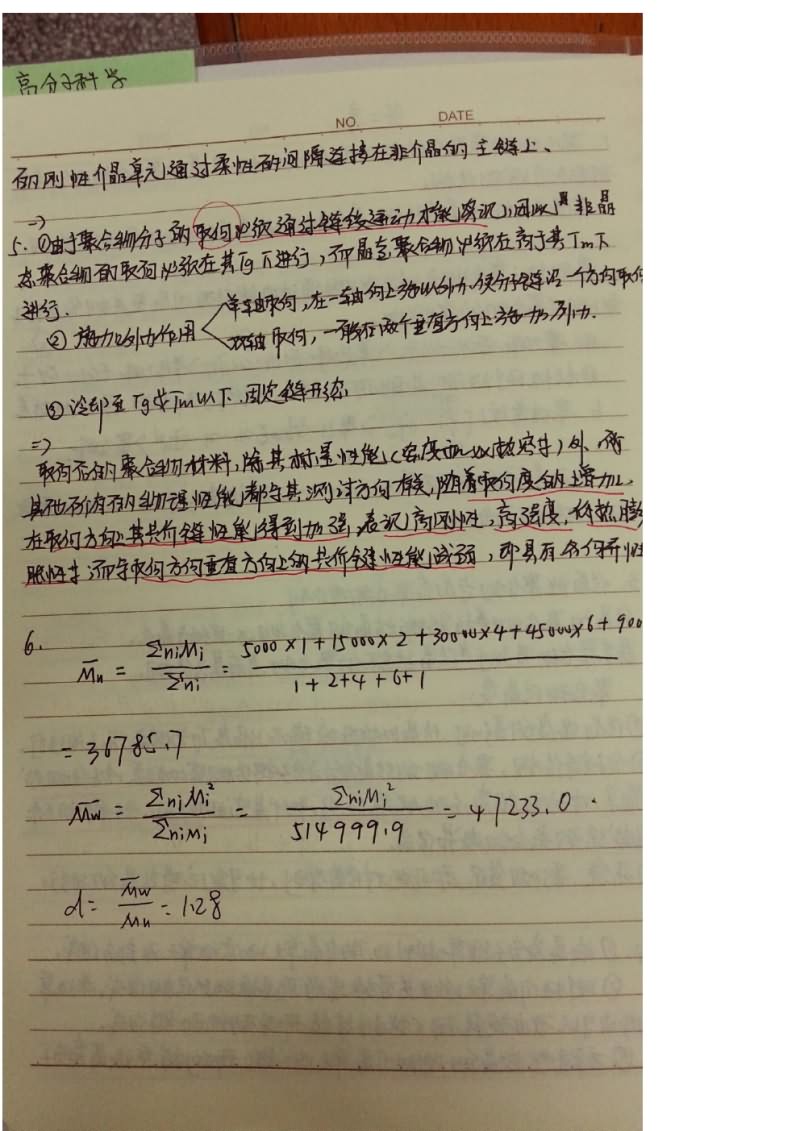 高分子科学
NO. DATE
的刚性介晶单元通过柔性的间隔连接在非介晶的主链上、
=>
5. ①由于聚合物分子的取向必须通过链段运动才能实现,因此 非晶
态聚合物的取向必须在其Tg下进行,而晶态聚合物必须在高于其Tm下
进行.
单轴取向,在一轴向上施以外力,使分子链沿一个方向取向
② 施以外力作用
双轴取向,一般在两个垂直方向上施加外力.
③ 冷却至Tg或Tm以下,固定链形态
=>
取向后的聚合物材料,除其 性能(密度 热容等)外,
其他所有的物理性能都与其测试方向有关,随着取向度的增加,
在取向方向上其共价键性能得到加强,表现高刚性,高强度,低热膨
胀性等;而与取向方向垂直方向上的共价键性能减弱,即具有各向异性
6.
M̄n = ΣniMi / Σni = 5000×1+15000×2+30000×4+45000×6+900 / 1+2+4+6+1
= 36785.7
M̄w = ΣniMi² / ΣniMi = ΣniMi² / 514999.9 = 47233.0 .
d = M̄w / M̄n = 1.28